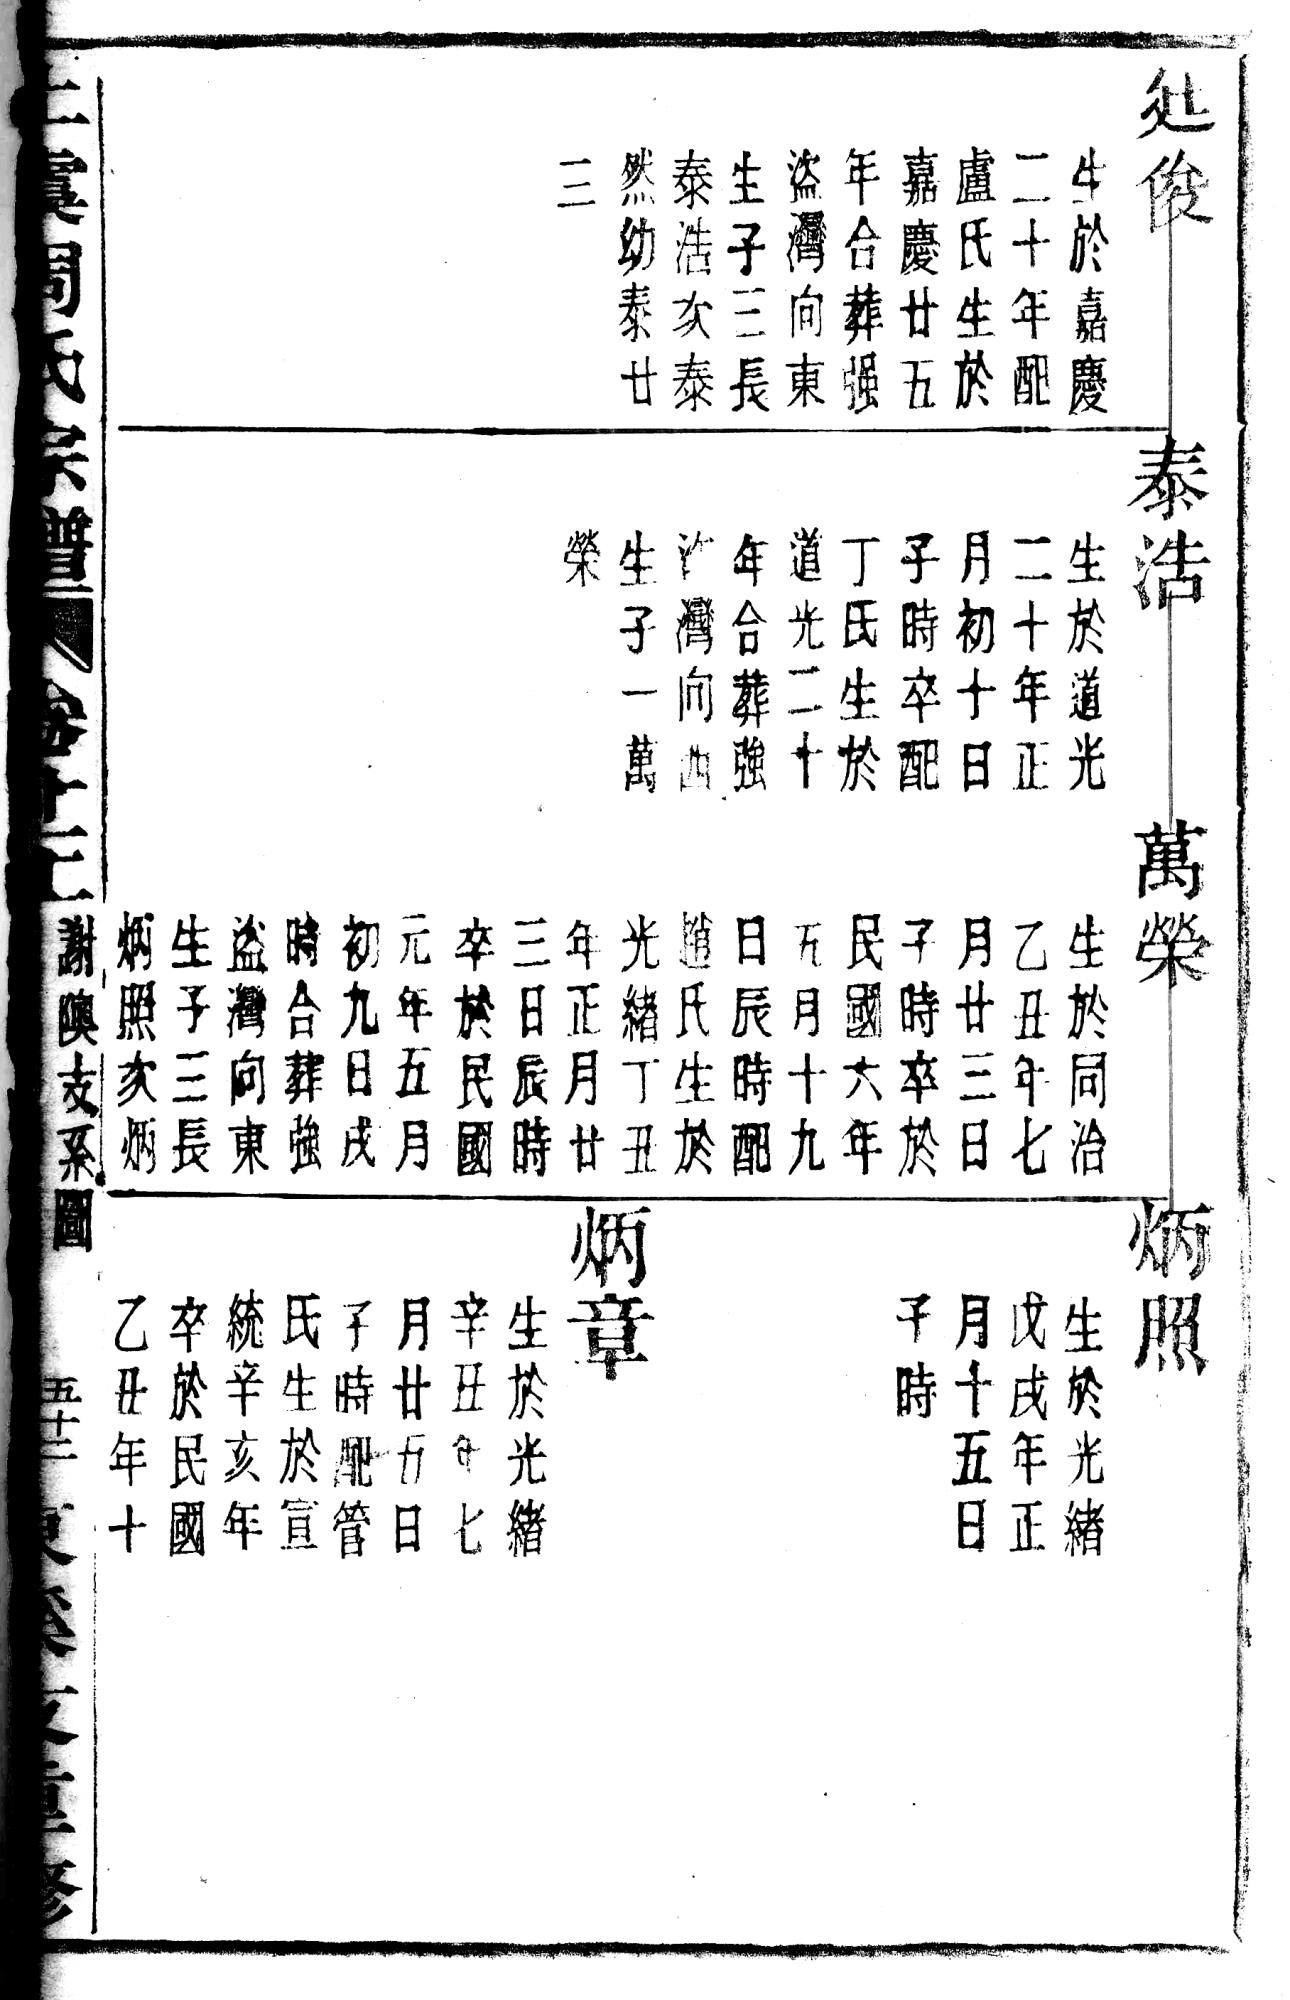 处俊
生於嘉慶
二十年配
盧氏生於
嘉慶廿五
年合葬强
盜灣向東
生子三長
泰浩次泰
然幼泰廿
三
泰浩
生於道光
二十年正
月初十日
子時卒配
丁氏生於
道光二十
年合葬強
灣向西
生子一萬
榮
萬榮
生於同治
乙丑年七
月廿三日
子時卒於
民國六年
五月十九
日辰時配
趙氏生於
光緒丁丑
年正月廿
三日辰時
卒於民國
元年五月
初九日戌
時合葬強
盜灣向東
生子三長
炳照次炳
炳照
生於光緒
戊戌年正
月十五日
子時
炳章
生於光緒
辛丑年七
月廿五日
子時配管
氏生於宣
統辛亥年
卒於民國
乙丑年十
上虞周氏宗譜
卷十二
謝隩支系圖
五十二
重修